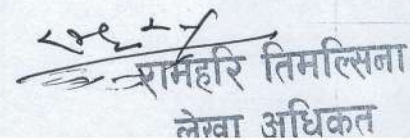 रामहरि तिमल्सिना
लेखा अधिकृत